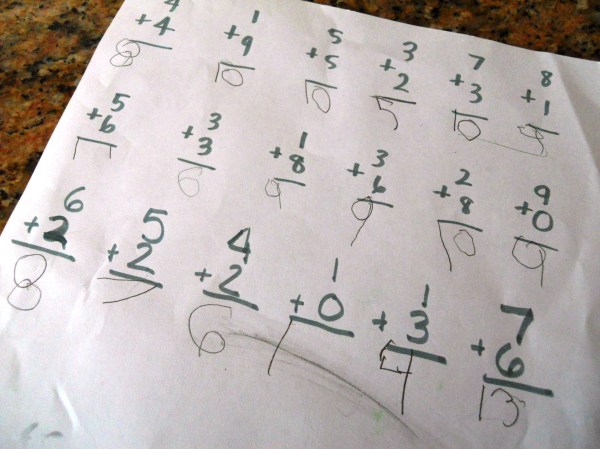 4 1 5 3 7 8
+4 +9 +5 +2 +3 +1
8 10 10 5 10 9
5 3 1 3 2 9
+6 +3 +8 +6 +8 +0
11 6 9 9 10 9
6 5 4 1 1 7
+2 +2 +2 +0 +3 +6
8 7 6 1 4 13